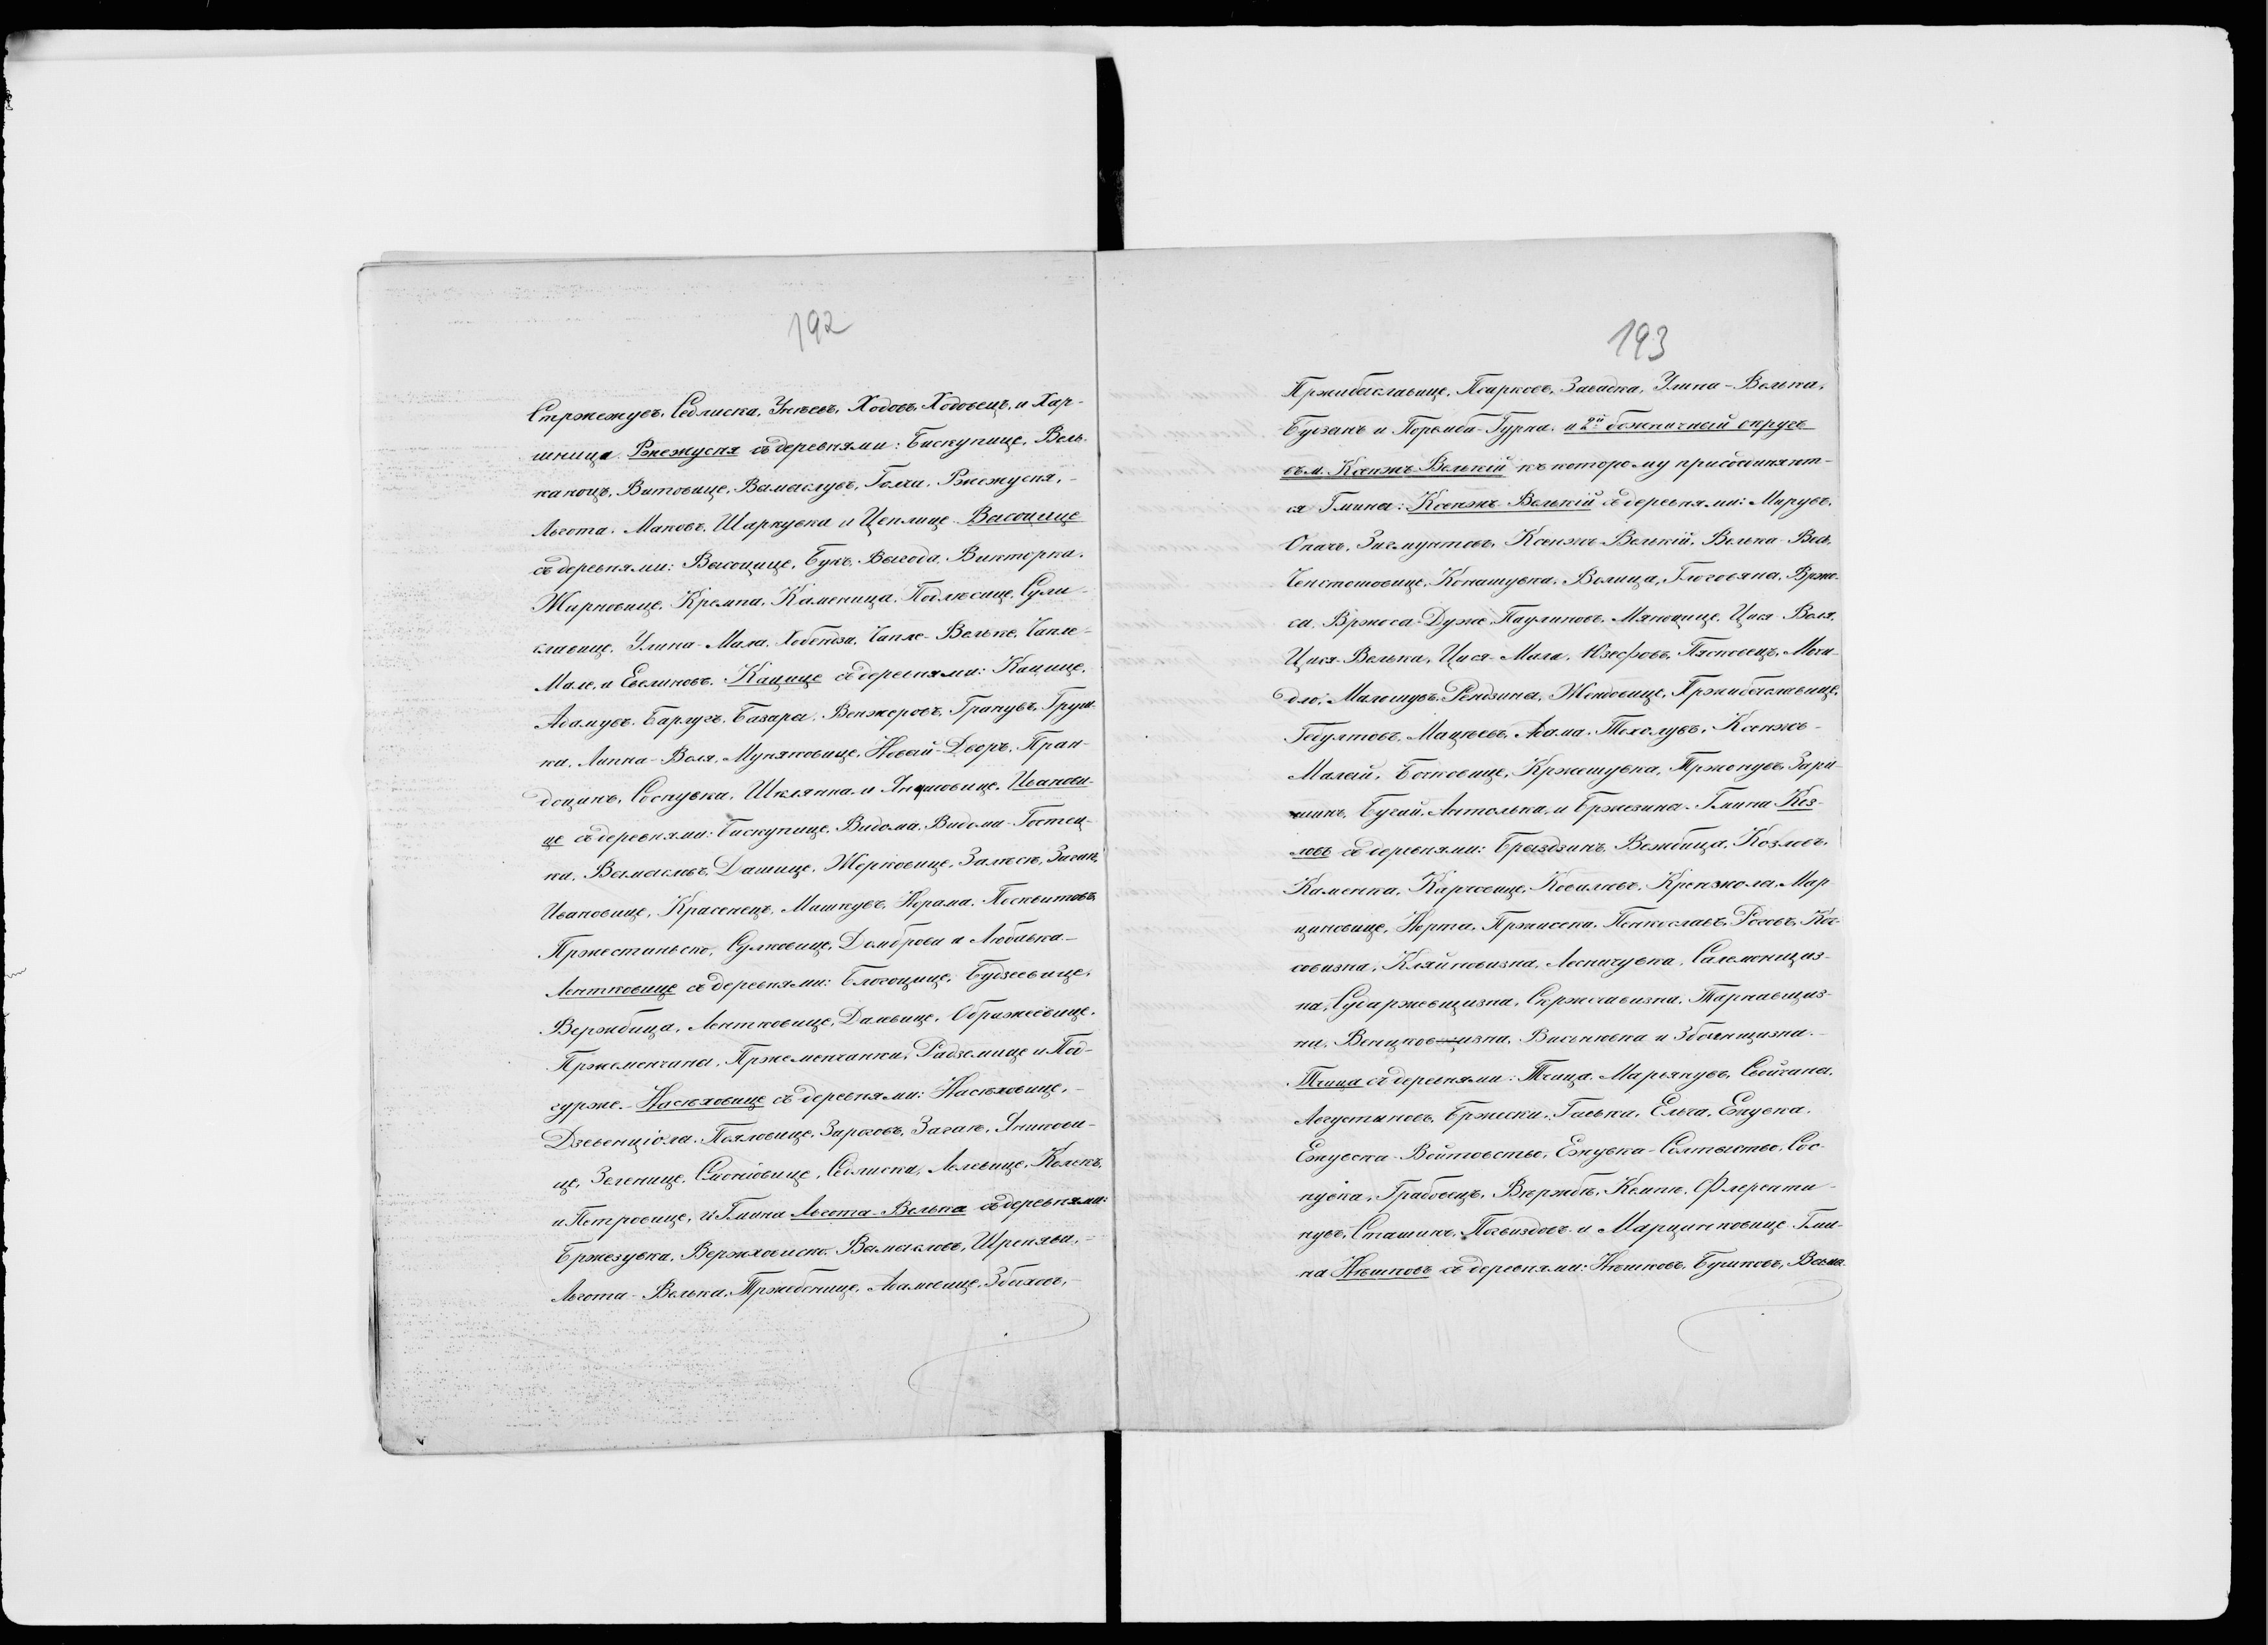 192
Стржежувъ, Седлиска, Униевъ, Ходовъ, Ходовецъ, и Хар-
шница. Ржежусня съ деревнями: Бискупице, Вель-
каноцъ, Витовице, Вымыслувъ, Голча, Ржежусня,
Льгота, Маковъ, Шаркувка и Цеплице Высоцице
съ деревнями: Высоцице, Букъ, Выгода, Викторка,
Жарновице, Кремпа, Каменица, Подлесице, Сули-
славице, Улина-Мала, Хобендза, Чапле-Вельке, Чапле-
Мале, и Евелиновъ. Кацице съ деревнями: Кацице,
Адамувъ, Барлугъ, Базары, Венжеровъ, Транувъ, Груш-
ка, Липна-Воля, Муняковице, Новый-Дворъ, Пран-
доцинъ, Соснувка, Шклянна и Янушовице, Иванови-
це съ деревнями: Бискупице, Видома, Видома-Гостец-
ка, Вымыслов, Дашице, Жерковице, Залесе, Загай-
ки, Ивановице, Красенецъ, Машкувъ, Нарама, Посквитовъ,
Пржестаньско, Сулковице, Домброва и Любавка
Лентковице съ деревнями: Блогоцице, Будзеевице,
Вержбица, Лентковице, Даневице, Ображеёвице,
Пржеменчаны, Пржеменчанки, Радземице и Под-
гурже. Насеховице съ деревнями: Насеховице,
Дзевенціола, Пояловице, Зарогов, Загае, Яниkови-
це, Зеленице, Смоніовице, Седлиска, Лелевице, Колекъ,
и Петровице, и Гмина Льгота-Велька съ деревнями:
Бржезувка, Вержховиско, Вымысловъ, Шренява,
Льгота-Велька, Тржебенице, Адамовице, Збиховъ,
193
Пржибыславице, Псарковъ, Завадка, Улина-Велька,
Бугзань и Поремба-Гурна. и 2й божничный округъ
въ м. Ксенжъ-Великій къ которому присоединяют-
ся Гмина: Ксенжъ-Великій съ деревнями: Мирувъ,
Опачъ, Зигмунтовъ, Ксенжъ-Великій, Велька-Весь,
Ченстошовице, Конашувка, Волица, Глоговяна, Врже-
са, Вржоса-Дуже, Паулиновъ, Мянюцице, Цися-Воля,
Цися-Велька, Цися-Мала, Юзефовъ, Пясковецъ, Моки-
дло, Малошувъ, Рендзины, Жендовице, Пржибыславице,
Гебултовъ, Мацеевъ, Адама, Тохолувъ, Ксенжъ-
Малый, Бочковице, Кржешувка, Тржонувъ, Зари-
шинъ, Бугай, Антолька, и Бржезина. Гмина Коз-
ловъ съ деревнями: Брыздзинъ, Вежбица, Козловъ,
Каменка, Карчовице, Ковалювъ, Кремжола, Мар-
циновице, Норта, Пржисека, Пенкославъ, Роговъ, Кос-
совизна, Кляйновизна, Лесничувка, Саломонищиз-
на, Сударжевщизна, Скржечавизна, Тарнавщиз-
на, Веницковщизна, Висьнювка и Збоянщизна.
Тчица съ деревнями: Тчица, Марьянувъ, Свойчаны,
Августыновъ, Бржиски, Гаська, Ельча, Ежувка,
Ежувска-Войтовство, Ежувка-Солтыство, Сос-
нувка, Грабовецъ, Вержбе, Кемпе, Флеренти-
нувъ, Сташинъ, Погвиздовъ и Марцинковице. Гми-
на Нешковъ съ деревнями: Нешковъ, Бушковъ, Вымы-